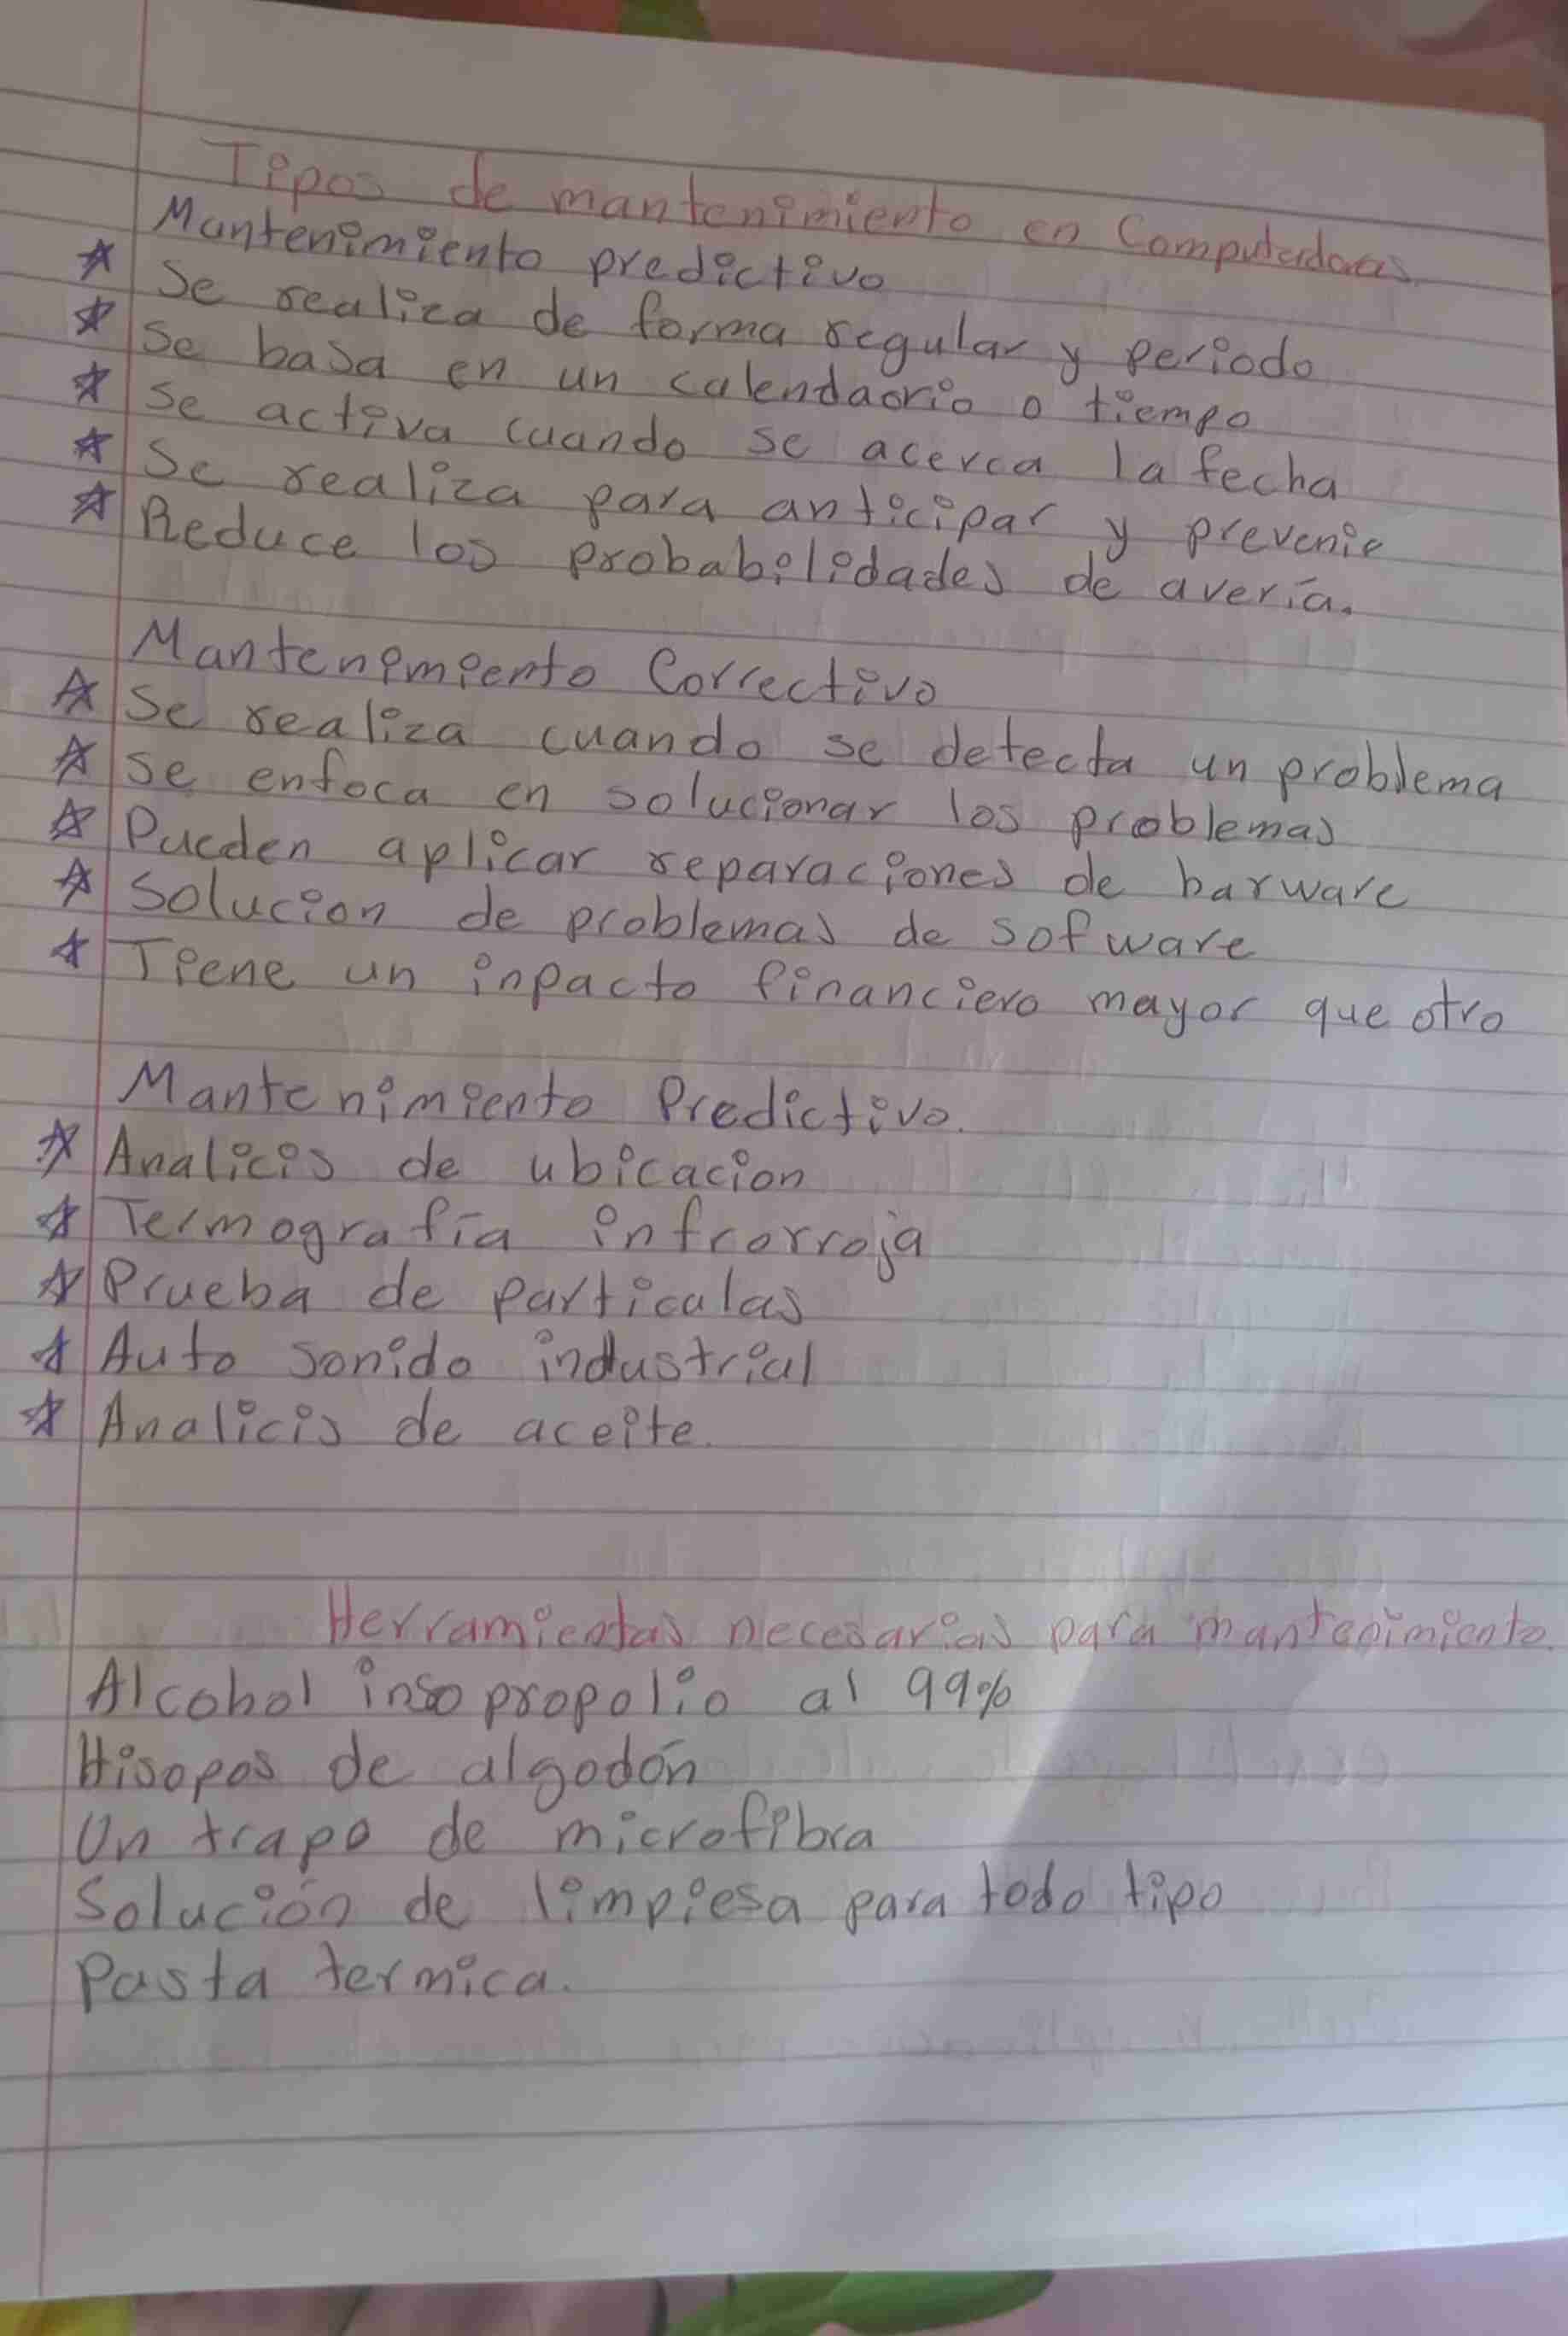 Tipos de mantenimiento en Computadoras.
Mantenimiento predictivo
☆ Se realiza de forma regular y periodo
☆ Se basa en un calendaorio o tiempo
☆ Se activa cuando se acerca la fecha
☆ Se realiza para anticipar y prevenir
☆ Reduce los probabilidades de avería.
Mantenimiento Correctivo
☆ Se realiza cuando se detecta un problema
☆ Se enfoca en solucionar los problemas
☆ Pueden aplicar reparaciones de barware
☆ Solucion de problemas de sofware
☆ Tiene un inpacto financiero mayor que otro
Mantenimiento Predictivo.
☆ Analicis de ubicacion
☆ Termografía infrorroja
☆ Prueba de particulas
☆ Auto sonido industrial
☆ Analicis de aceite.
Herramientas necesarias para mantenimiento.
Alcohol insopropolio al 99%
Hisopos de algodón
Un trapo de microfibra
Solución de limpiesa para todo tipo
Pasta termica.